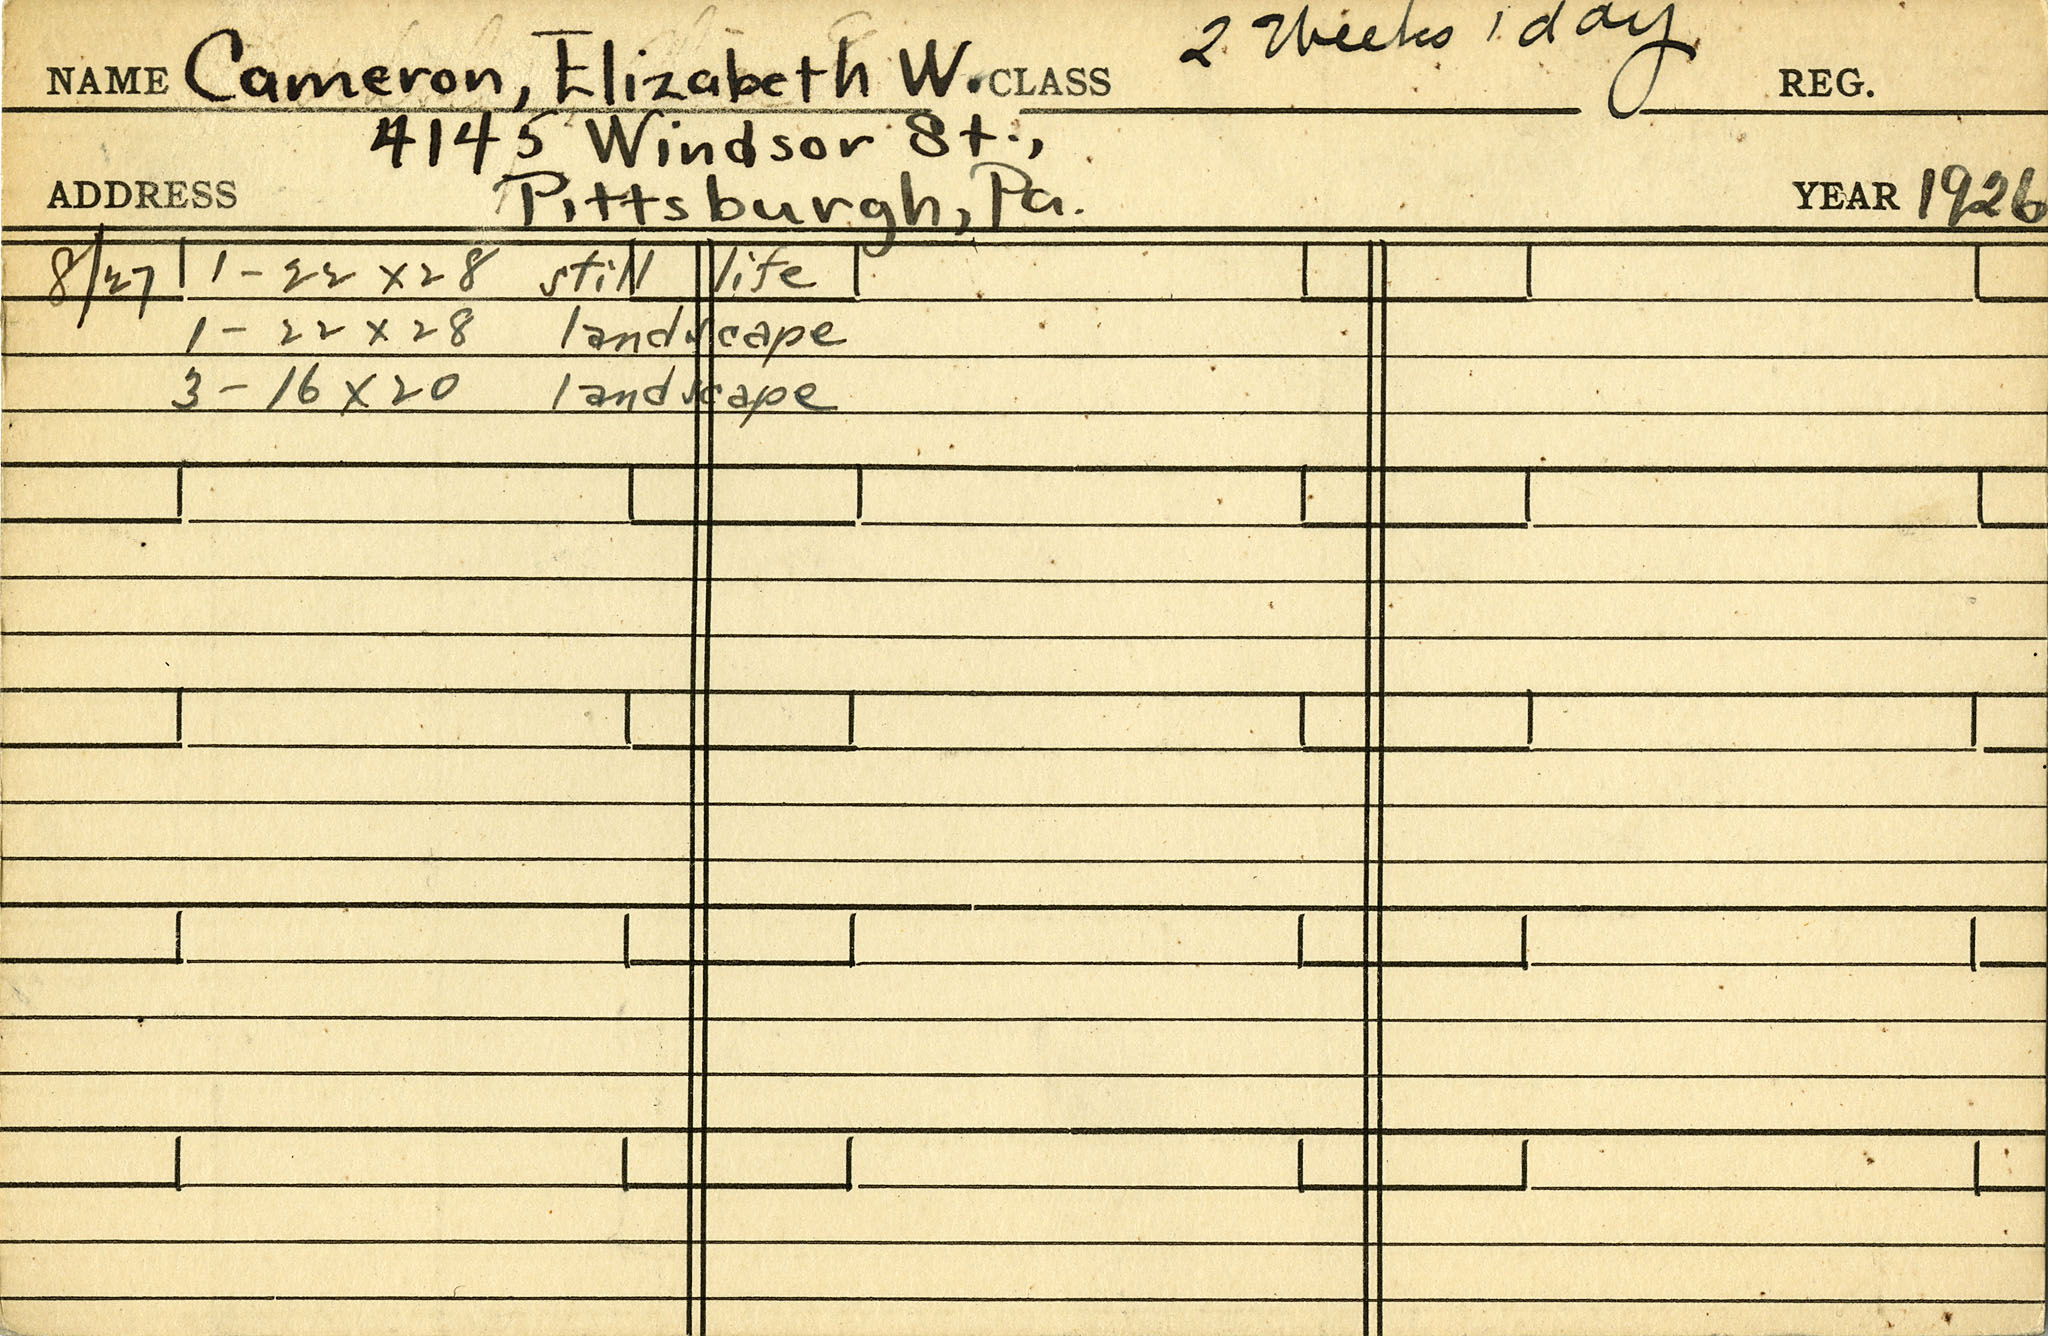 NAME Cameron, Elizabeth W. CLASS 2 Weeks 1 day REG.
4145 Windsor St.,
ADDRESS Pittsburgh, Pa. YEAR 1926
8/27 1 - 22 x 28 still life
1 - 22 x 28 landscape
3 - 16 x 20 landscape